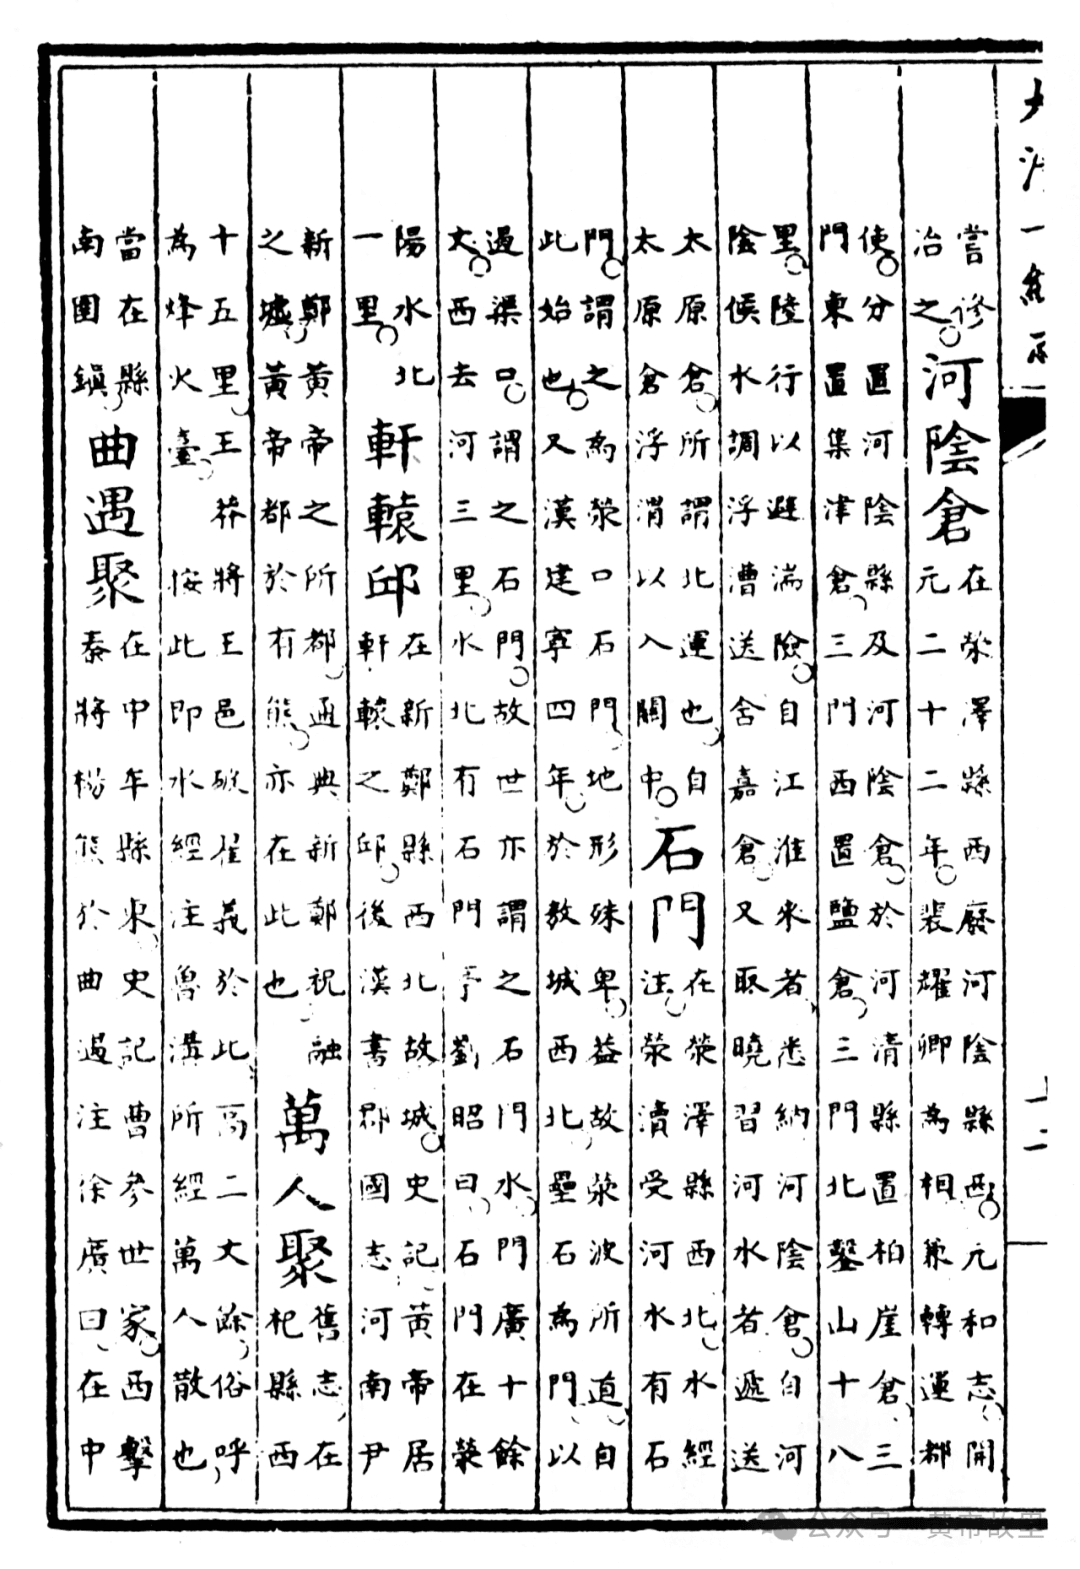 嘗修
治之
河陰倉
在滎澤縣西廢河陰縣西元和志開
元二十二年裴耀卿為相兼轉運都
使分置河陰縣及河陰倉於河清縣置柏崖倉三
門東置集津倉三門西置鹽倉三門北鑿山十八
里陸行以避湍險自江淮來者悉納河陰倉自河
陰候水調浮漕送含嘉倉又取曉習河水者遞送
太原倉所謂北運也自
太原倉浮渭以入關中
石門
在滎澤縣西北水經
注滎瀆受河水有石
門謂之為滎口石門地形殊卑益故滎波所道自
此始也又漢建寧四年於敖城西北壘石為門以
遏渠口謂之石門故世亦謂之石門水門廣十餘
丈西去河三里水北有石門亭劉昭曰石門在滎
陽水北
一里
軒轅邱
在新鄭縣西北故城史記黃帝居
軒轅之邱後漢書郡國志河南尹
新鄭黃帝之所都通典新鄭祝融
之墟黃帝都於有熊亦在此也
萬人聚
舊志在
杞縣西
十五里王莽將王邑破崔義於此高二丈餘俗呼
為烽火臺 按此即水經注魯溝所經萬人散也
當在縣
南圉鎮
曲遇聚
在中牟縣東史記曹參世家西擊
秦將楊熊於曲遇注徐廣曰在中
公众号 黄帝故里